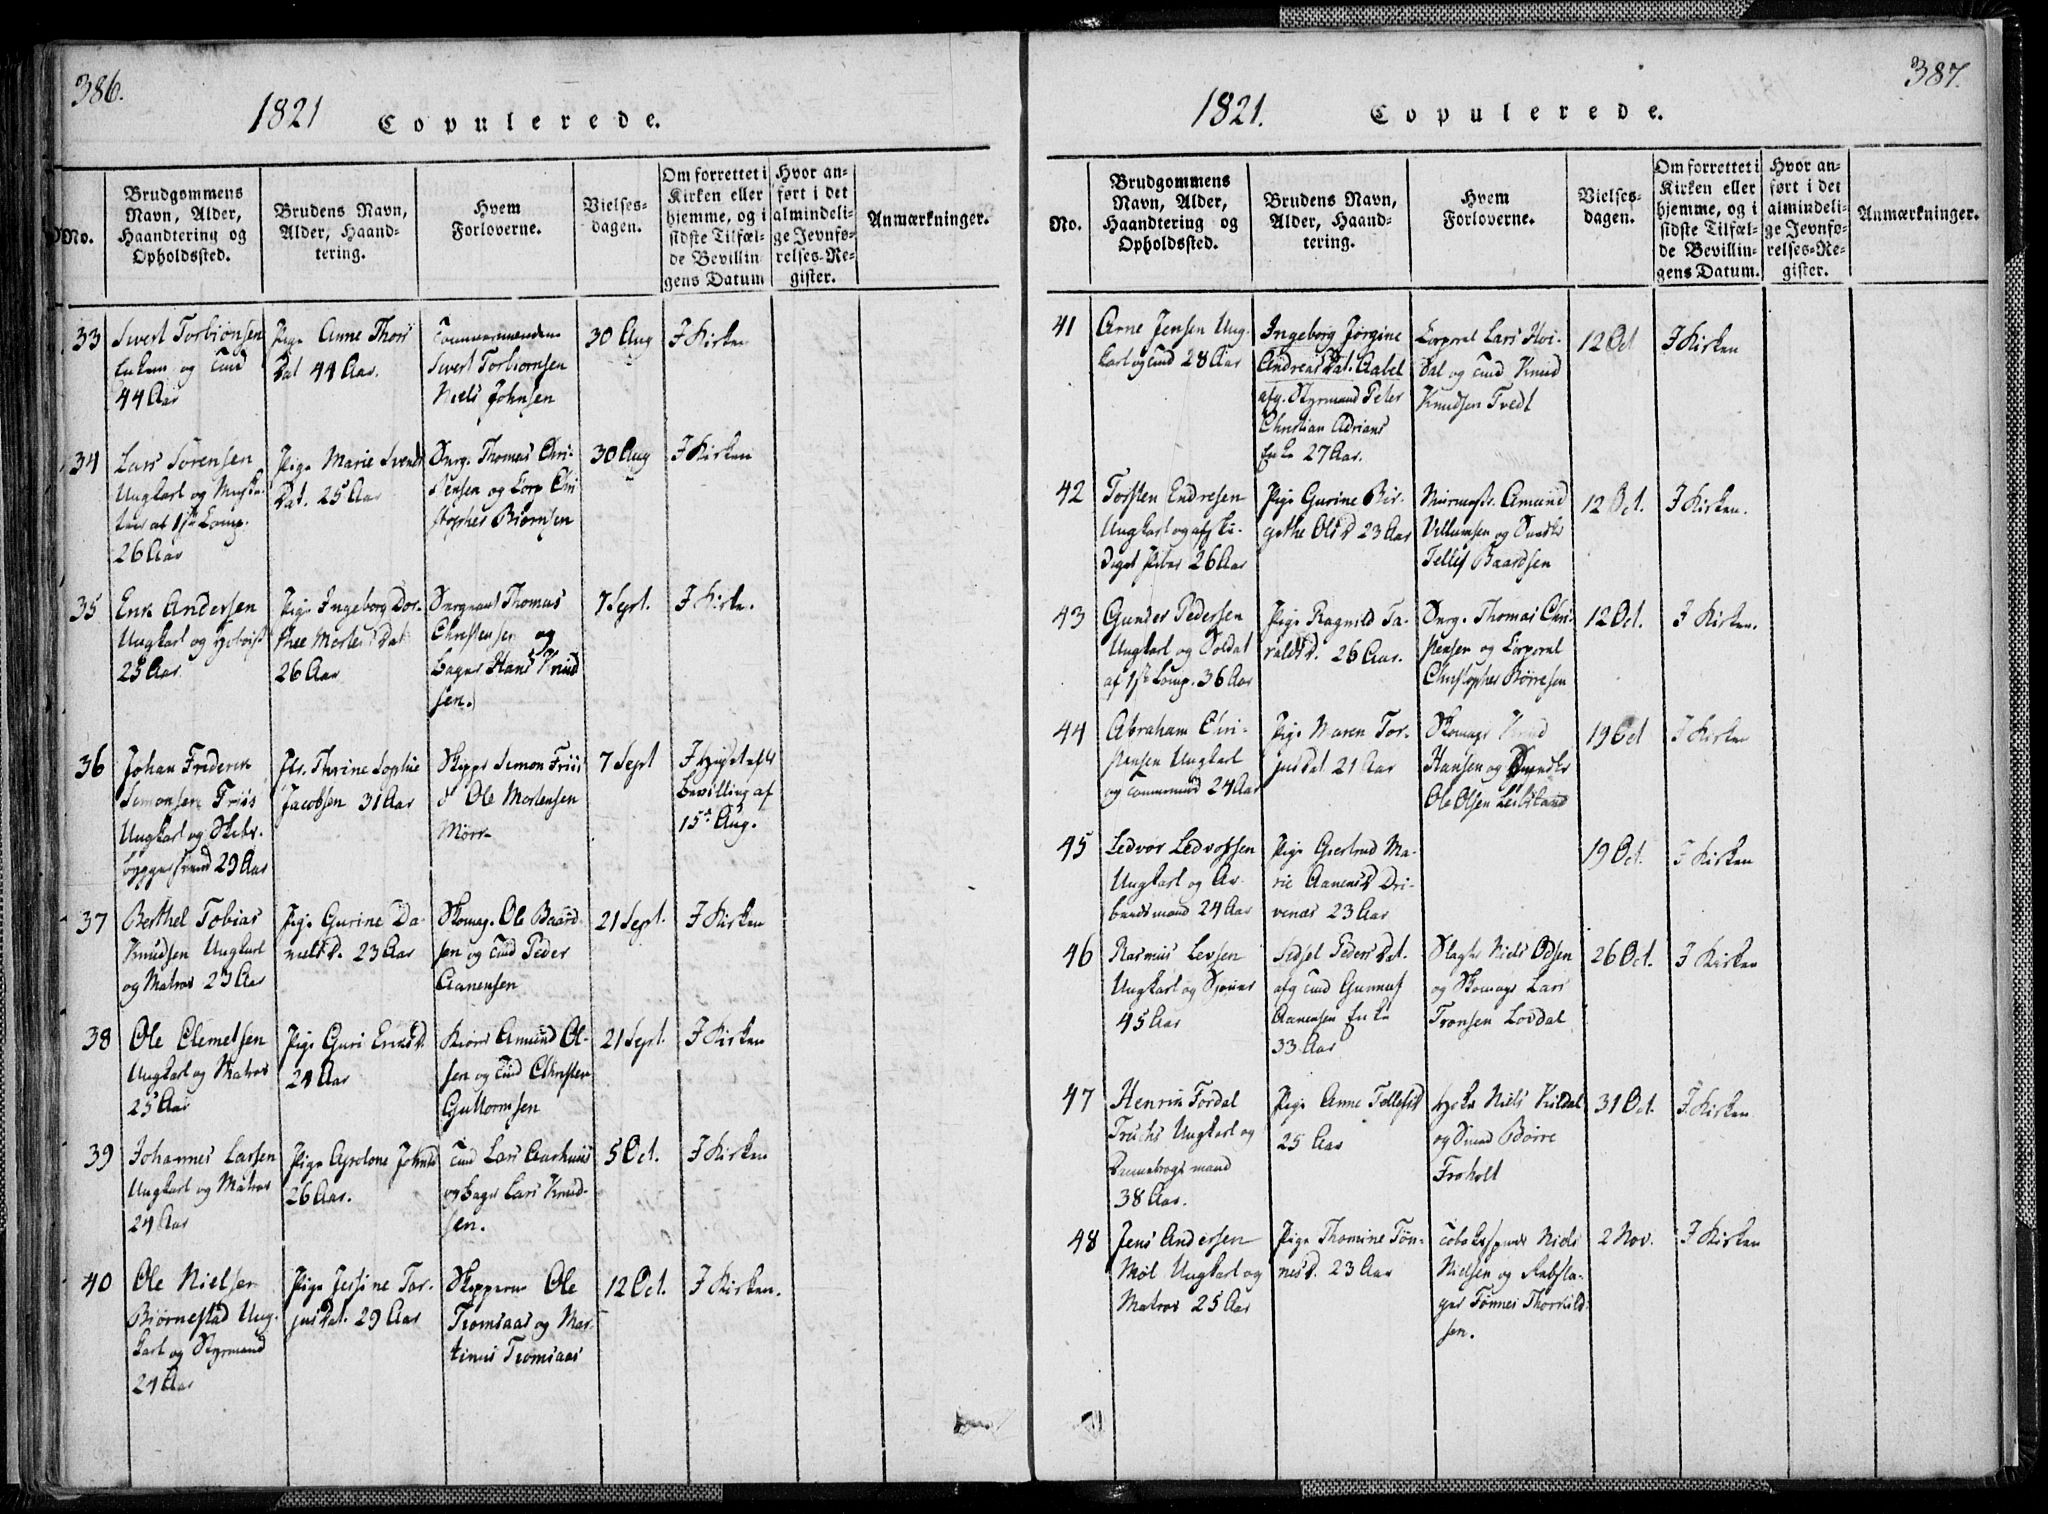 386.
1821 Copulerede.
No.
Brudgommens Navn, Alder, Haandtering og Opholdssted.
Brudens Navn, Alder, Haand-tering.
Hvem Forloverne.
Vielses-dagen.
Om forrettet i Kirken eller hjemme, og i sidste Tilfæl-de Bevillin-gens Datum
Hvor an-ført i det almindeli-ge Jevnfø-relses-Re-gister.
Anmærkninger.
33
Sivert Torbiønsen
Enkem og Tmd
44 Aar
Pige Anne Thors
Dat 44 Aar.
Tømmermændene
Sivert Torbiornsen
Niels Johnsen
30 Aug
I Kirken
34
Lars Sørensen
Ungkarl og Muske-
teer af 1ste Comp.
26 Aar
Pige Marie Svends
Dat. 25 Aar
Serg. Thomas Chri-
stensen og Corp Chri
stopher Biørnsen
30 Aug
I Kirken
35
Erik Andersen
Ungkarl og
25 Aar
Pige Ingeborg Dor-
thee Mortens Dat
26 Aar
Sergeant Thomas
Christensen og
Bager Hans Knud
sen.
7 Sept.
I Kirke.
36
Johan Friderik
Simonsen Friis
Ungkarl og Skibs-
byggersvend 29 Aar
Jfr. Thrine Sophie
Jacobsen 31 Aar
Skippr Simon Friis
& Ole Mortensen
Mørk
7 Sept
I Huset efter
Bevilling af
15de Aug.
37
Berthel Tobias
Knudsen Ungkarl
og Matros 23 Aar
Pige Gurine Da-
nielsD. 23 Aar
Skomag. Ole Baard-
sen og Tmd Peder
Aanensen
21 Sept.
I Kirken
38
Ole Clemetsen
Ungkarl og Matros
25 Aar
Pige Guri
24 Aar
Amund Ol-
sen og Tmd Christen
Guttormsen
21 Sept.
I Kirken
39
Johannes Larsen
Ungkarl og Matros
24 Aar
Pige Apolone JohnsD
26 Aar.
Tmd Lars Aarhuus
og Bager Lars Knud-
sen.
5 Oct.
I Kirken
40
Ole Nielsen
Biørnestad Ung-
karl og Styrmand
24 Aar
Pige Jessine Tor-
jusDat. 29 Aar
Skipperne Ole
Tromsaas og Mar-
tinus Tromsaas
12 Oct.
I Kirken.
387.
1821. Copulerede.
No.
Brudgommens Navn, Alder, Haandtering og Opholdssted.
Brudens Navn, Alder, Haand-tering.
Hvem Forloverne.
Vielses-dagen.
Om forrettet i Kirken eller hjemme, og i sidste Tilfæl-de Bevillin-gens Datum.
Hvor an-ført i det almindeli-ge Jevnfø-relses-Re-gister.
Anmærkninger.
41
Arne Jensen Ung-
karl og Tmd 28 Aar
Ingeborg Jørgine
AndreasDat. Aabel
afg. Styrmand Peter
Christian Adrians
Enke 27 Aar.
Corporal Lars Hoi-
dal og Tmd Knud
Knudsen Tvedt
12 Oct
I Kirken
42
Torsten Endresen
Ungkarl og afske-
diget Piber 26 Aar
Pige Gurine Bir-
gethe OlsD 23 Aar
Muurmestr. Amund
Villumsen og Snedkr
Tellef Baardsen
12 Oct.
I Kirken.
43
Gunder Pedersen
Ungkarl og Soldat
af 1ste Comp. 36 Aar
Pige Ragnild Ta-
raldsD. 26 Aar.
Serg. Thomas Chri-
stensen og Corporal
Christopher Børresen
12 Oct.
I Kirken.
44
Abraham Chri-
stensen Ungkarl
og Tømmermd 24 Aar
Pige Maren Tor-
jusDat. 21 Aar
Skomagr Knud
Hansen og Snedkr
Ole Olsen
19 Oct
I Kirken
45
Ledvor Ledvorsen
Ungkarl og Ar-
beidsmand 24 Aar
Pige Giertrud Ma-
rie AanensD Dri-
venæs 23 Aar
19 Oct.
I Kirken
46
Rasmus Levsen
Ungkarl og
45 Aar
Sidsel Peders Dat.
afg Tmd Gunnuf
Aanensen Enke
33 Aar
Slagtr Niels Odsen
og Skomagr Lars
Tronsen Lovdal
26 Oct.
I Kirken
47
Henrik Fordal
Ungkarl og
Dannebrogsmand
38 Aar.
Pige Anne TellefsD
25 Aar
Niels Kildal
og Smed Børre
Froholt
31 Oct.
I Kirken
48
Jens Andersen
Møl Ungkarl og
Matros 25 Aar
Pige Thomine Tøn-
nesD. 23 Aar
Tobaksspinder Niels
Nielsen og Rebsla-
ger Tønnes Thorkild-
sen.
2 Nov.
I Kirken